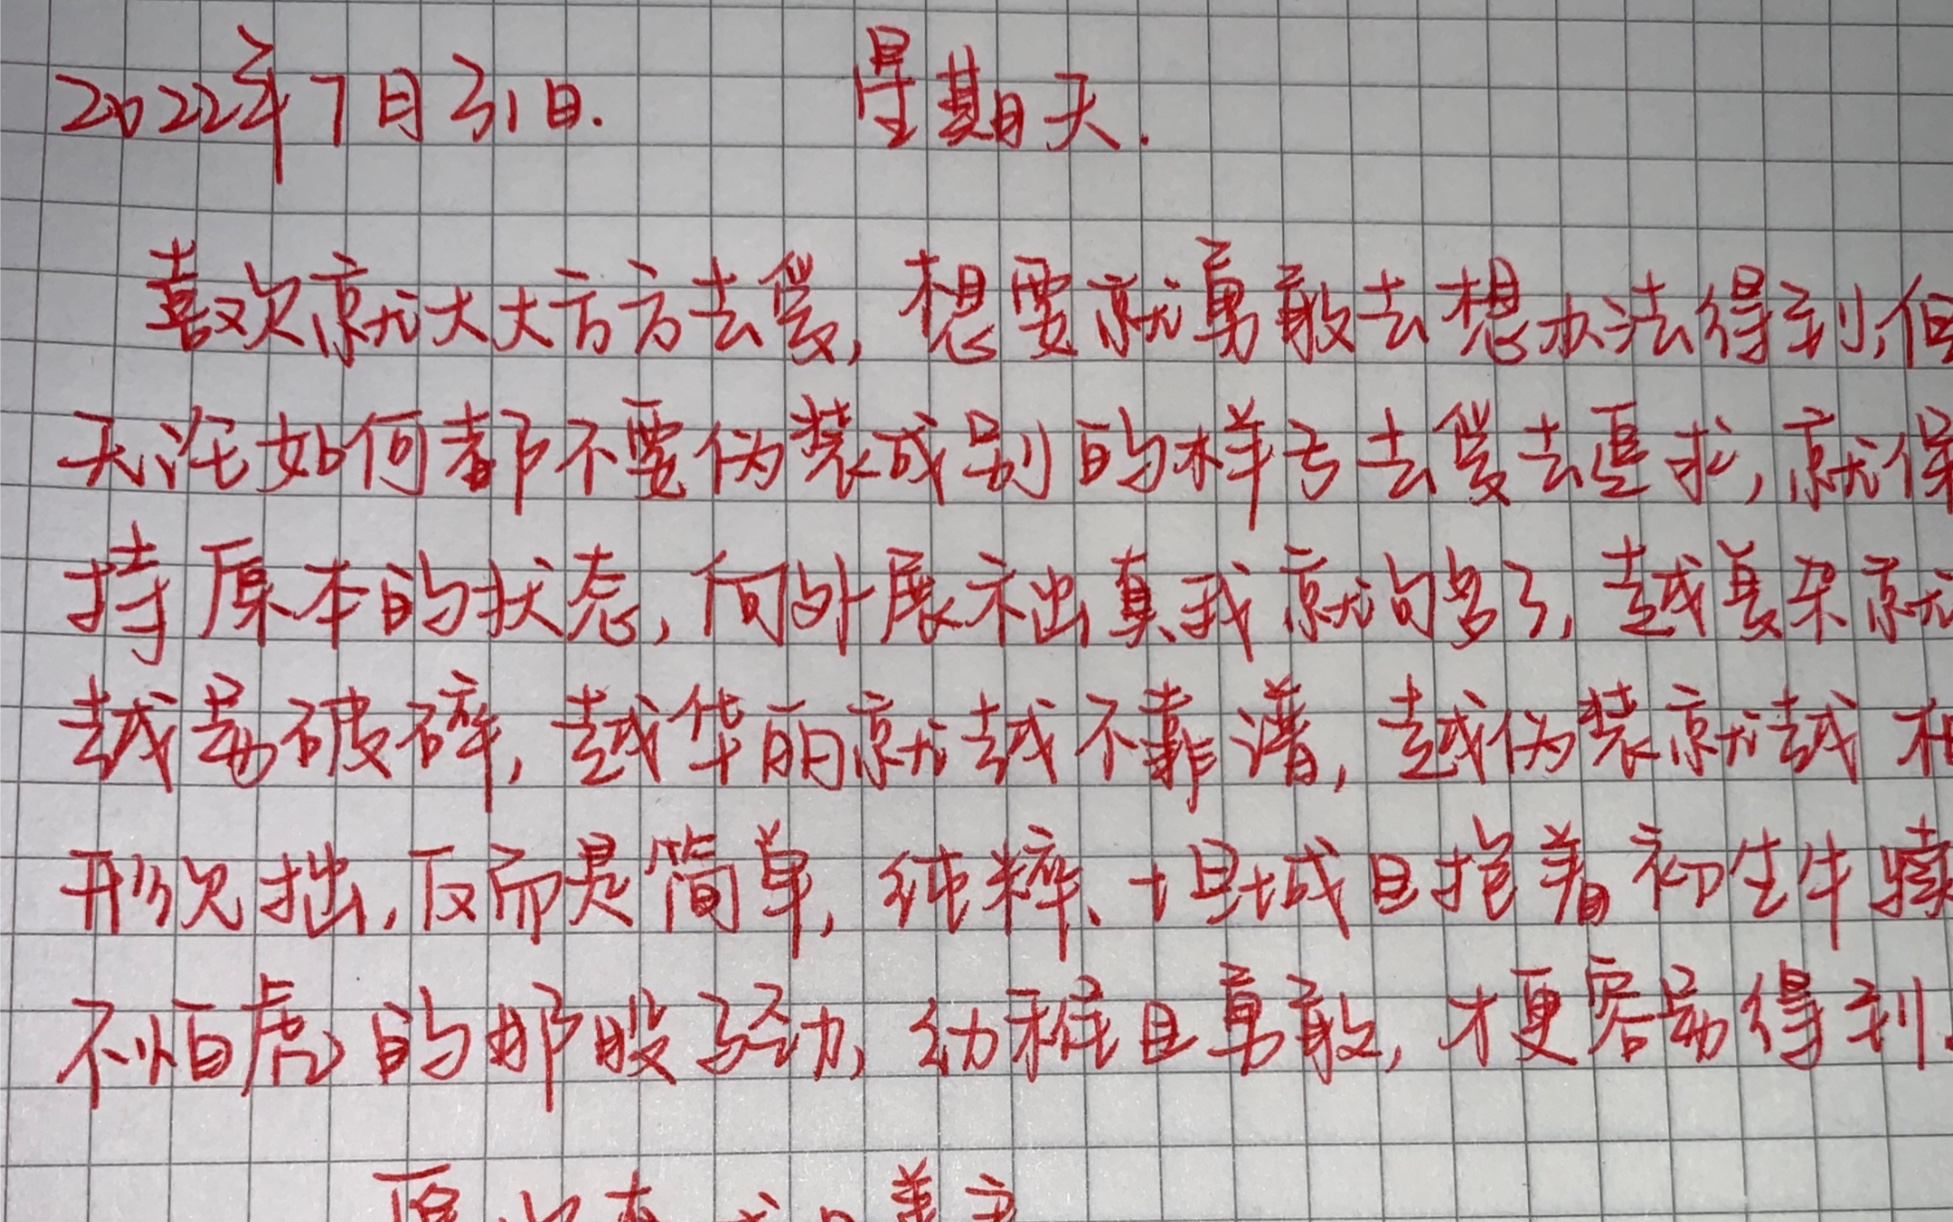 2022年7月31日. 星期天.
喜欢就大大方方去爱,想要就勇敢去想办法得到,但
无论如何都不要伪装成别的样子去爱去追求,就保
持原本的状态,向外展示出真我就够了,越复杂就
越易破碎,越华丽就越不靠谱,越伪装就越相
形见拙,反而是简单,纯粹、坦诚且抱着初生牛犊
不怕虎的那股子劲,幼稚且勇敢,才更容易得到.